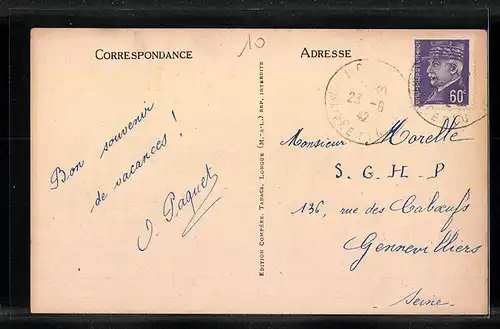 CORRESPONDANCE
10
ADRESSE
60c
23 -6
42
Bon souvenir
de vacances !
J. Paquet
EDITION COMPÈRE, TABACS, LONGUÉ (M.-&-L.) REP. INTERDITE
Monsieur Morelle
S. G. H. P
136, rue des Cabœufs
Gennevilliers
Seine.